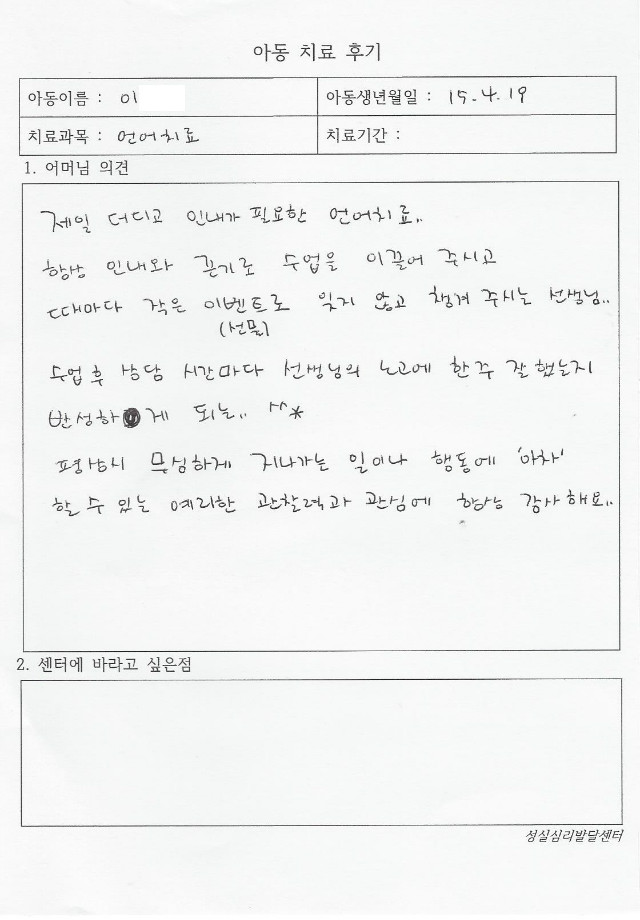 아동 치료 후기
아동이름 : 이
아동생년월일 : 15.4.19
치료과목 : 언어치료
치료기간 :
1. 어머님 의견
제일 더디고 인내가 필요한 언어치료..
항상 인내와 끈기로 수업을 이끌어 주시고
때마다 작은 이벤트로 잊지 않고 챙겨 주시는 선생님..
(선물)
수업 후 상담 시간마다 선생님의 노고에 한주 잘 했는지
반성하게 되는.. ^^*
평상시 무심하게 지나가는 일이나 행동에 '아차'
할 수 있는 예리한 관찰력과 관심에 항상 감사해요..
2. 센터에 바라고 싶은점
성실심리발달센터